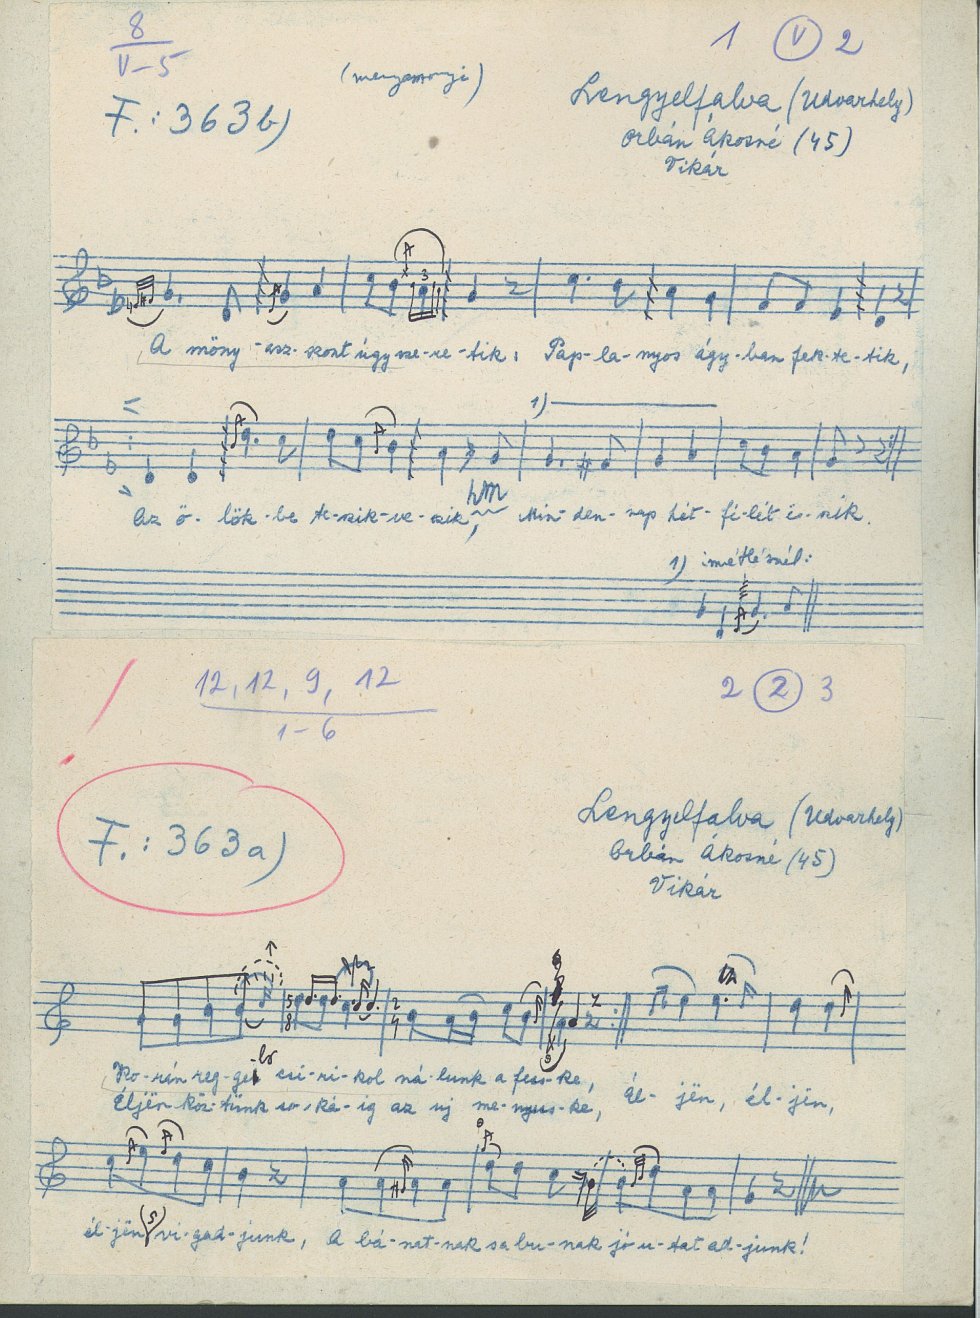 8
V-5
1 V 2
F.: 363b)
Lengyelfalva (Udvarhely)
Orbán Ákosné (45)
Vikár
3
A möny-asz-szont úgy sze-re-tik, Pap-la-nyos ágy-ban fek-te-tik,
1)
Az ö-lök-be te-szik-ve-szik, Min-den-nap hét-fé-lét é-szik.
hm
1) ismétlésnél:
12, 12, 9, 12
1-6
2 2 3
F.: 363a)
Lengyelfalva (Udvarhely)
Orbán Ákosné (45)
Vikár
5
8
2
4
Ko-rán reg-gel csi-ri-kol ná-lunk a fecs-ke, él-jën, él-jën,
Éljën köz-tünk so-ká-ig az uj me-nyus-ké,
él-jën (s) vi-gad-junk, A bá-nat-nak sa bu-nak jó u-tat ad-junk!